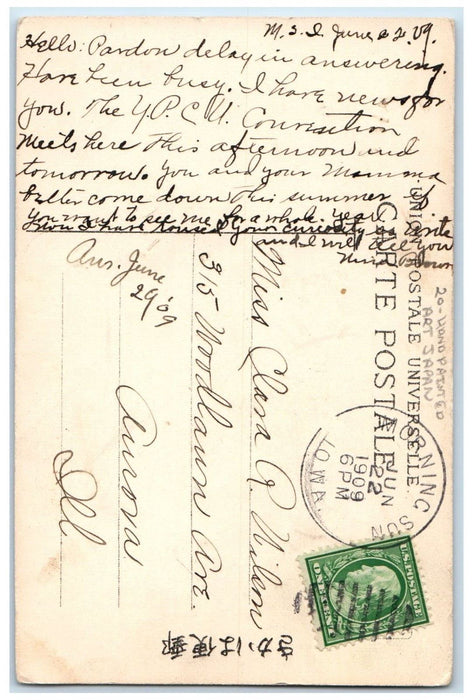 M.S.I June 22. 09.
Hello: Pardon delay in answering.
Have been busy. I have news for
you. The Y.P.C.U. Convention
meets here this afternoon and
tomorrow. You and your Mamma
better come down this summer if
you want to see me for a whole year.
Now I have roused your curiosity so write
and I will tell you
Ans. June
29 '09
Miss Clara A. Wilson
315 Woodlawn Ave.
Aurora
Ill
UNION POSTALE UNIVERSELLE.
CARTE POSTALE
20-HAND PAINTED
ART JAPAN
MORNING SUN
JUN
22
1909
6 PM
IOWA.
U.S. POSTAGE
ONE CENT
郵便はかき